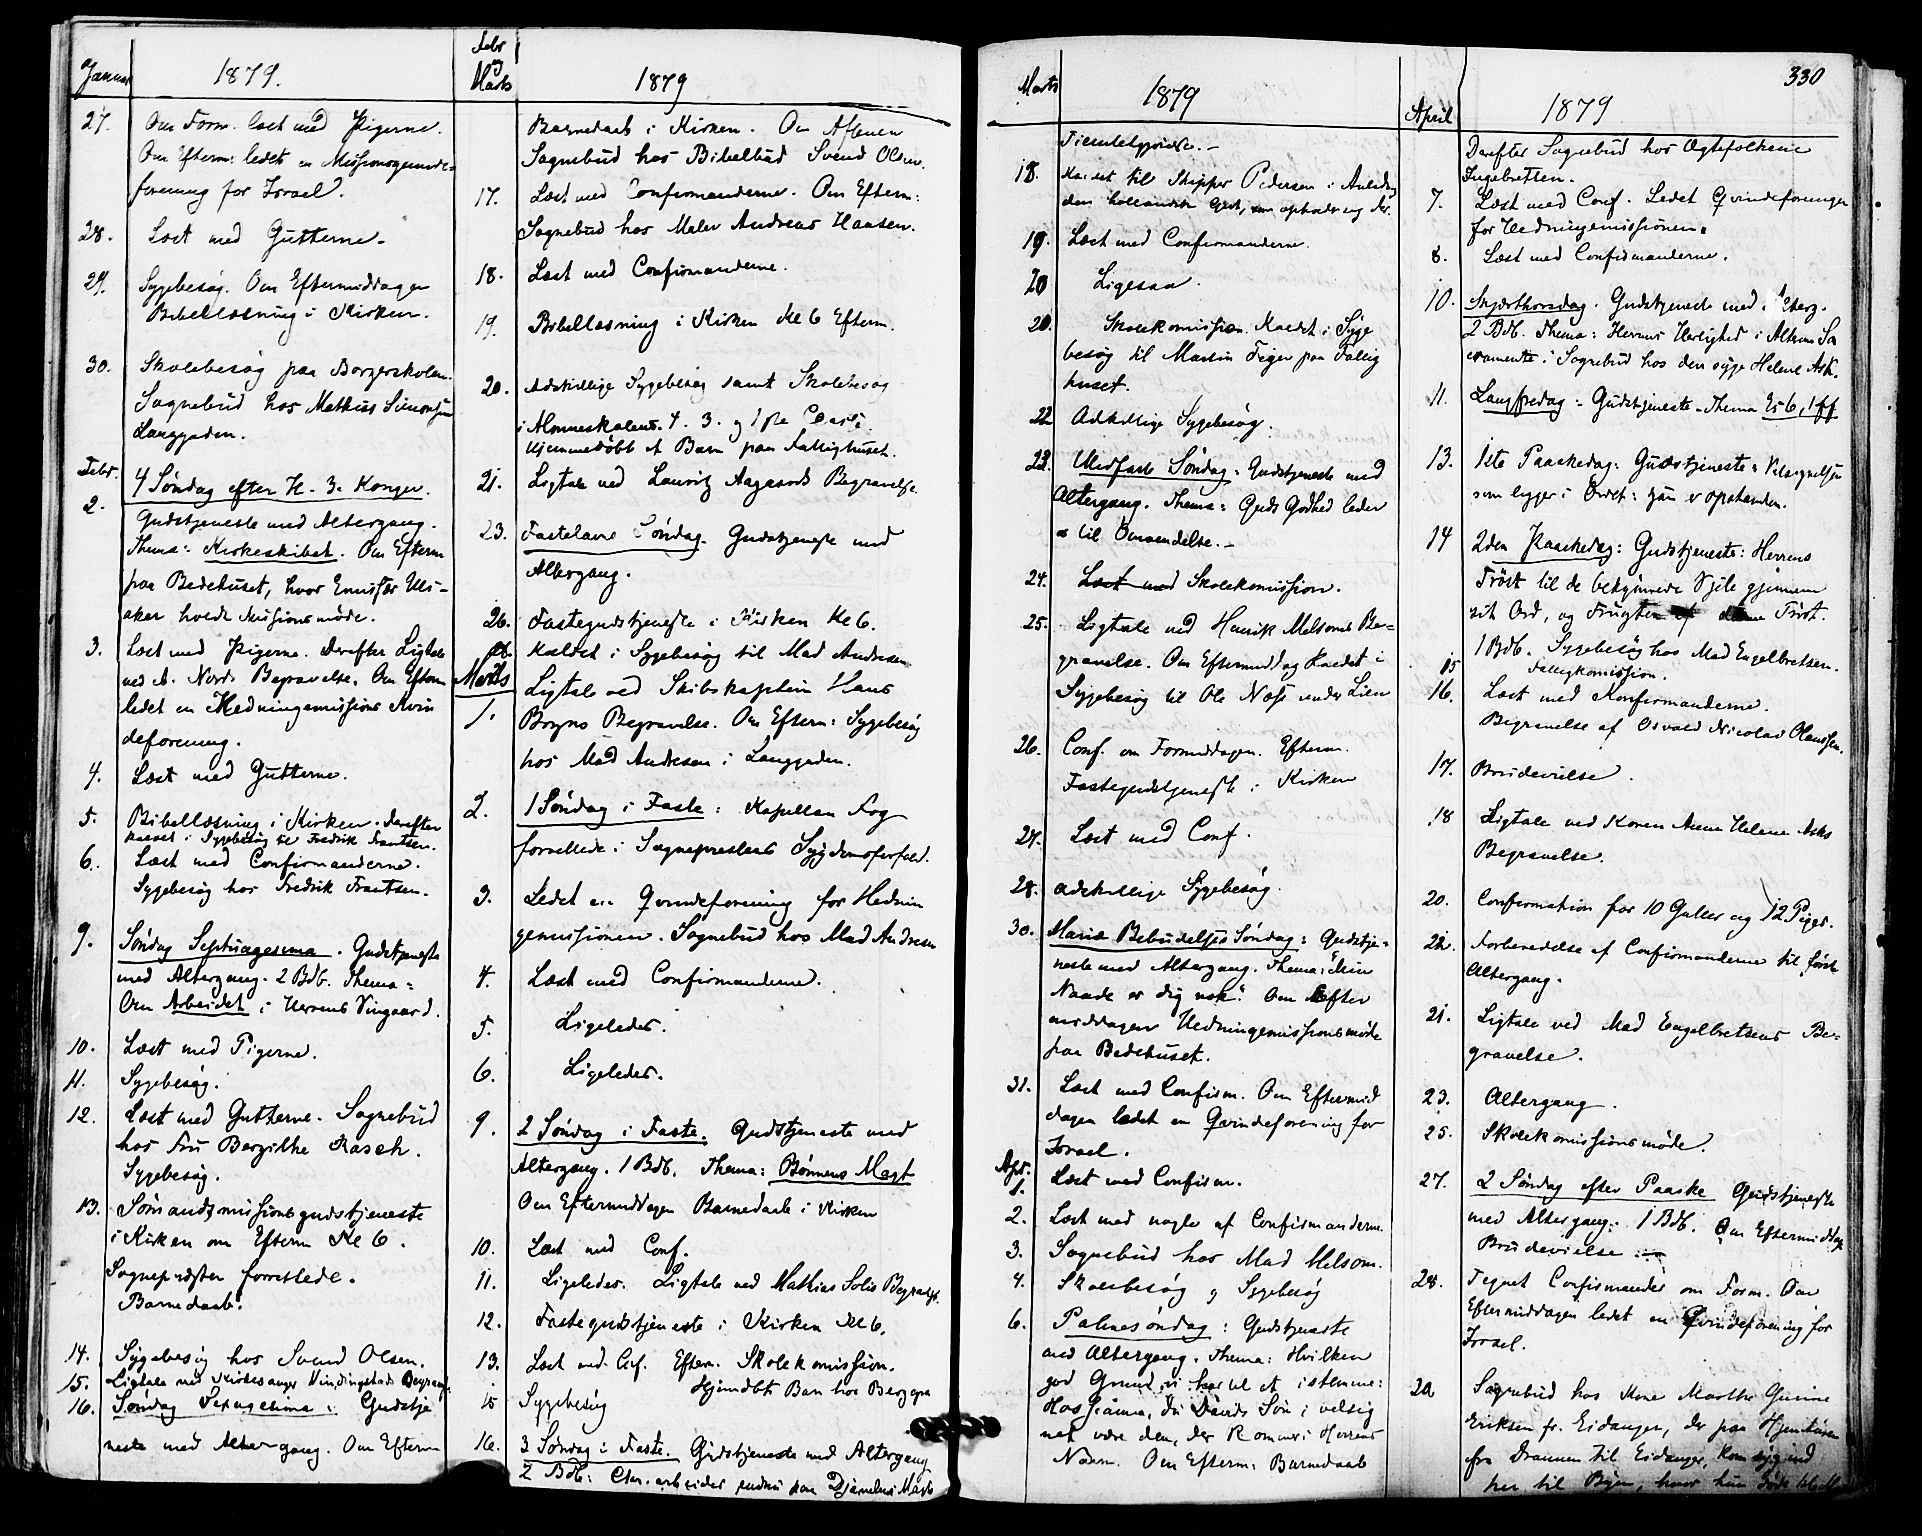 330
Januar
1879.
27. Om Form. læst med Pigerne.
Om Efterm: ledet en Missions
forening for Israel.
28. Læst med Gutterne.
29. Sygebesøg. Om Eftermiddagen
Bibellæsning i Kirken.
30. Skolebesøg paa Borgerskolen.
Sognebud hos Mathias Simonsen
Langgaden.
Febr.
2. 4 Søndag efter H. 3. Konger.
Gudstjeneste med Altergang.
Thema: Kirkeskibet. Om Efterm
paa Bedehuset, hvor Emissær Uls-
aker holdt Missionsmøde.
3. Læst med Pigerne. Derefter Ligtale
ved A. Nords Begravelse. Om Efterm
ledet en Hedningemissions Kvin
deforening.
4. Læst med Gutterne.
5. Bibellæsning i Kirken. Derefter
kaldet i Sygebesøg til Fredrik Frantsen.
6. Læst med Confirmanderne.
Sygebesøg hos Fredrik Frantsen.
9. Søndag Septuagesima. Gudstjeneste
med Altergang. 2 Bdb. Thema:
Om Arbeidet i Herrens Vingaard.
10. Læst med Pigerne.
11. Sygebesøg.
12. Læst med Gutterne. Sognebud
hos Fru Bergithe Rasch.
Sygebesøg.
13. Sømandsmissionsgudstjeneste
i Kirken om Efterm Kl 6.
Sognepræsten forrettede.
Barnedaab.
14. Sygebesøg hos Svend Olsen.
15. Ligtale ved Kirkesanger Begrav
16. Søndag Sexagesima: Gudstje
neste med Altergang. Om Efterm
Febr
og
Marts
1879
Barnedaab i Kirken. Om Aftenen
Sognebud hos Bibelbud Svend Olsen.
17. Læst med Confirmanderne. Om Efterm:
Sognebud hos Maler Andreas Hansen.
18. Læst med Confirmanderne.
19. Bibellæsning i Kirken Kl 6 Efterm.
20. Adskillige Sygebesøg samt Skolebesøg
i Almueskolens 4. 3. og 1ste Classe.
Hjemmedøbt et Barn paa Fattighuset.
21. Ligtale ved Lauritz Aagaards Begravelse
23. Fastelavns Søndag. Gudstjeneste med
Altergang.
26. Fastegudstjeneste i Kirken Kl 6.
28. Kaldet i Sygebesøg til Mad Andresen
Marts
1. Ligtale ved Skibskaptein Hans
Bryns Begravelse. Om Efterm: Sygebesøg
hos Mad Andresen i Langgaden.
2. 1 Søndag i Faste: Kapellan Fog
forrettede i Sognepræstens Sygdomsforfald.
3. Ledet en Qvindeforening for Hednin
gemissionen. Sognebud hos Mad Andresen
4. Læst med Confirmanderne.
5. Ligeledes.
6. Ligeledes.
9. 2 Søndag i Faste. Gudstjeneste med
Altergang. 1 Bdb. Thema: Bønnens Magt
Om Eftermiddagen Barnedaab i Kirken
10. Læst med Conf.
11. Ligeledes. Ligtale ved Mathias Solis Begravelse.
12. Fastegudstjeneste i Kirken Kl 6.
13. Læst med Cof. Efterm. Skolekomission.
Hjemdbt Barn hos
15 Sygebesøg
16. 3 Søndag i Faste. Gudstjeneste med Altergang
2 Bdb: arbeider endnu paa Djævelens Magt
Marts
1879
18. Kaldet til Skipper Pedersen i
den hollandske
19. Læst med Confirmanderne.
20 Ligesaa.
20. Skolekomission. Kaldet i Syge
besøg til Martin Feger paa Fattig
huset.
22 Adskillige Sygebesøg.
23. Midfaste Søndag: Gudstjeneste med
Altergang. Thema: Guds Godhed leder
os til Omvendelse.-
24. Læst med Skolekomission.
25. Ligtale ved Henrik Melsoms Be-
gravelse. Om Eftermiddag Kaldet i
Sygebesøg til Ole Næss under Lien
26. Conf. om Formiddagen. Efterm.
Fastegudstjeneste i Kirken
27. Læst med Conf.
28. adskillige Sygebesøg.
30. Mariæ Bebudelses Søndag: Gudstje-
neste med Altergang. Thema: "Min
Naade er dig nok." Om Efter
middagen Hedningemissionsmøde
paa Bedehuset.
31. Læst med Confirm. Om Eftermid
dagen ledet en Qvindeforening for
Israel.
Apr.
1. Læst med Confirm.
2. Læst med nogle af Confirmanderne.
3. Sognebud hos Mad Melsom.
4. Skolebesøg og Sygebesøg
6. Palmesøndag: Gudstjeneste
med Altergang. Thema: Hvilken
god Grund vi har til at istemme:
Hosianna, du Davids Søn; velsig
net være den, der kommer i Herrens
Navn. Om Efterm: Barnedaab
April
1879
Derefter Sognebud hos Ægtefolkene
Ingebretsen.
7. Læst med Conf. Ledet Qvindeforeningen
for Hedningemissionen.
8. Læst med Confirmanderne.
10. Skjærthorsdag. Gudstjeneste med Alterg.
2 Bdb. Thema: Herrens Herlighed i Alterens Sa
cramente. Sognebud hos den syge Helene Ask.
11. Langfredag: Gudstjeneste. Thema Es 6, 1 ff
13. 1ste Paaskedag: Gudstjeneste: Velsignelsen
som ligger i Ordet: han er opstanden.
14 2den Paaskedag: Gudstjeneste: Herrens
Trøst til de bekymrede Sjæle gjennem
sit Ord, og Frugten af denne Trøst.
1 Bdb. Sygebesøg hos Mad Engelbretsen.
15 Fattigkomission.
16. Læst med Konfirmanderne.
Begravelse af Osvald Nicolai Olaussen.
17. Brudevielse.
18 Ligtale ved Karen Anne Helene Asks
Begravelse.
20. Confirmation for 10 Gutter og 12 Piger.
22. Forberedelse af Confirmanderne til første
Altergang.
21. Ligtale ved Mad Engelbretsens Be-
gravelse.
23. Altergang.
25. Skolekomissionsmøde.
27. 2 Søndag efter Paaske Gudstjeneste
med Altergang. 1 Bdb. Om Eftermiddag
Brudevielse.
28. Tegnet Confirmander om Form. Om
Eftermiddagen ledet en Qvindeforening for
Israel.
Sognebud hos Marthe Gurine
Eriksen fr. Eidanger, der paa Hjemturen
fra Drammen til Eidanger, kom syg ind
her til Byen, hvor hun